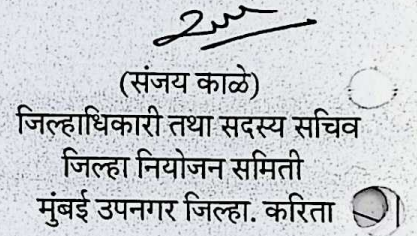 (संजय काळे)
जिल्हाधिकारी तथा सदस्य सचिव
जिल्हा नियोजन समिती
मुंबई उपनगर जिल्हा. करिता